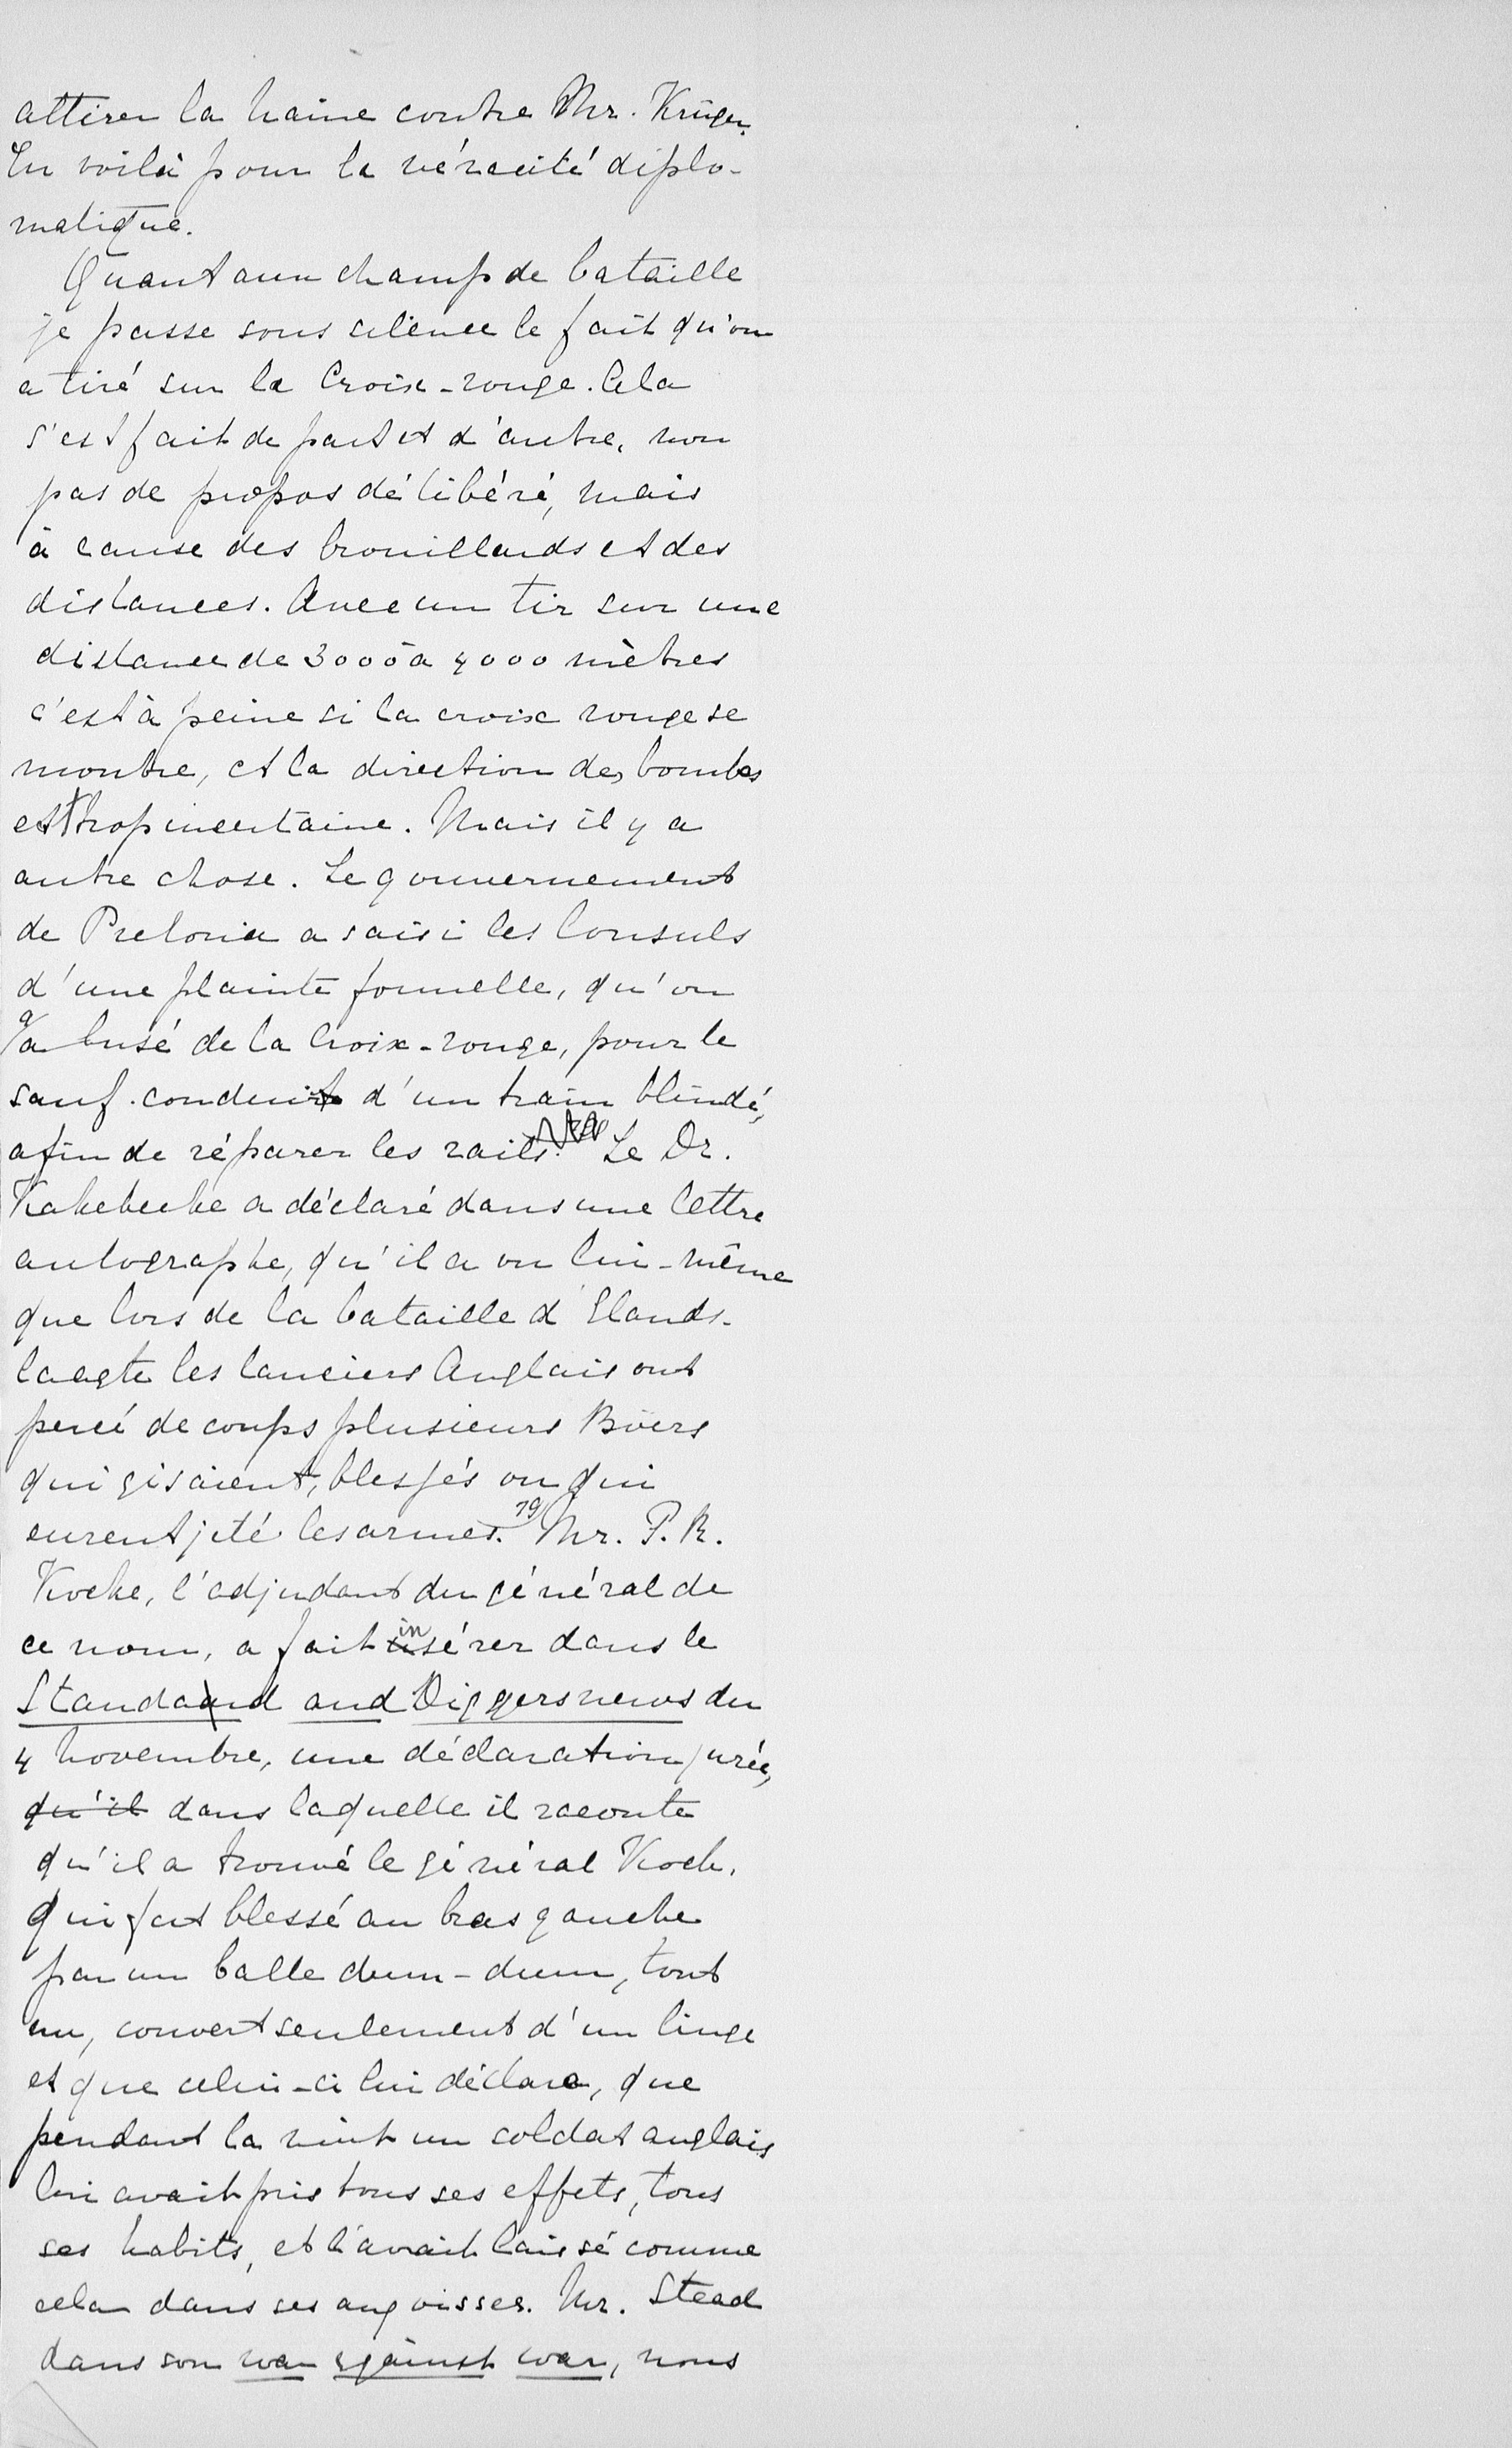 attirer la haine contre Mr. Krüger.
En voilà pour la véracité diplo-
matique.
Quant aux champ de bataille
je passe sous silence le fait qu'on
a tiré sur la Croix-rouge. Cela
s'est fait de part et d'autre, non
pas de propos délibéré, mais
à cause des brouillards et des
distances. Avec un tir sur une
distance de 3000 à 4000 mètres
c'est à peine si la croix rouge se
montre, et la direction des bombes
est trop incertaine. Mais il y a
autre chose. Le gouvernement
de Pretoria a saisi les Consuls
d'une plainte formelle, qu'on
a abusé de la Croix-rouge, pour le
sauf-conduit d'un train blindé,
afin de réparer les rails. Le Dr.
Kakebeeke a déclaré dans une lettre
autographe, qu'il a vu lui-même
que lors de la bataille d'Elands-
laagte les lanciers Anglais ont
percé de coups plusieurs Böers
qui gisaient, blessés ou qui
eurent jeté les armes. 79) Mr. P. R.
Kocke, l'adjudant du général de
ce nom, a fait insérer dans le
Standard and Diggersnews du
4 novembre, une déclaration jurée,
qu'il dans laquelle il raconte
qu'il a trouvé le général Kock,
qui fut blessé au bras gauche
par un balle dum-dum, tout
nu, couvert seulement d'un linge
et que celui-ci lui déclara, que
pendant la nuit un soldat anglais
lui avait pris tous ses effets, tous
ses habits, et l'avait laissé comme
cela dans ses angoisses. Mr. Stead
dans son war against war, nous